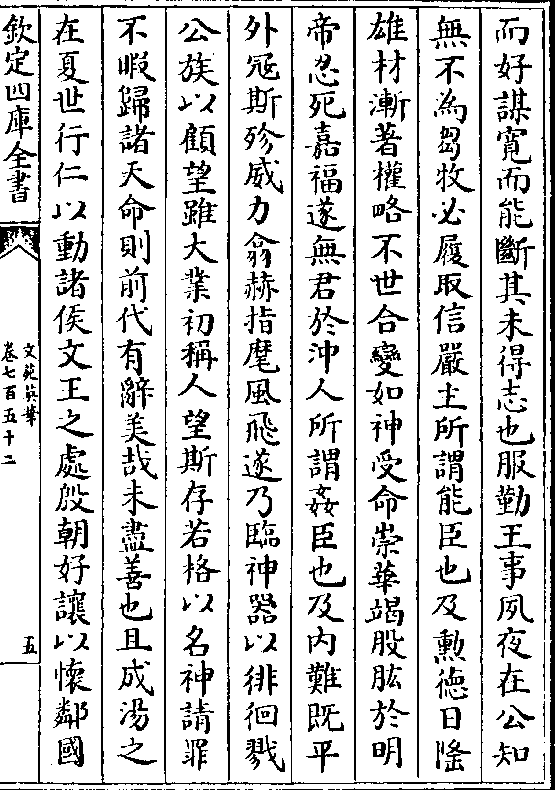 而好謀寛而能斷其未得志也服勤王事夙夜在公知
無不為芻牧必履取信嚴主所謂能臣也及勲徳日隆
雄材漸著權略不世合變如神受命崇華竭股肱於明
帝忍死嘉福遂無君於沖人所謂姦臣也及内難既平
外冦斯殄威力翕赫指麾風飛遂乃臨神器以徘徊戮
公族以顧望雖大業初稱人望斯存若格以名神請罪
不暇歸諸天命則前代有辭美哉未盡善也且成湯之
在夏世行仁以動諸侯文王之處殷朝好讓以懷鄰國
欽定四庫全書
文苑英華
卷七百五十二
五